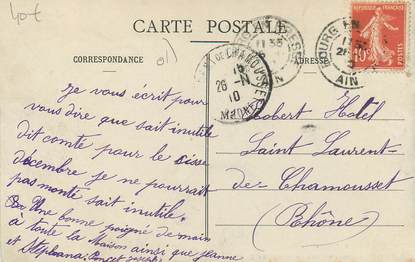 40€
CARTE POSTALE
CORRESPONDANCE
ADRESSE
BOURG EN
AIN
10
26 -11
10
RHONE
Je vous écrit pour
vous dire que sait inutile
dit comté pour le sisse
décembre je ne pourrait
pas monté sait inutile.
Une bonne poigné de main
à toute la Maison ainsi que Jeanne
et Stephana
Robert Hotel
Saint Laurent-
de-Chamousset
(Rhône)